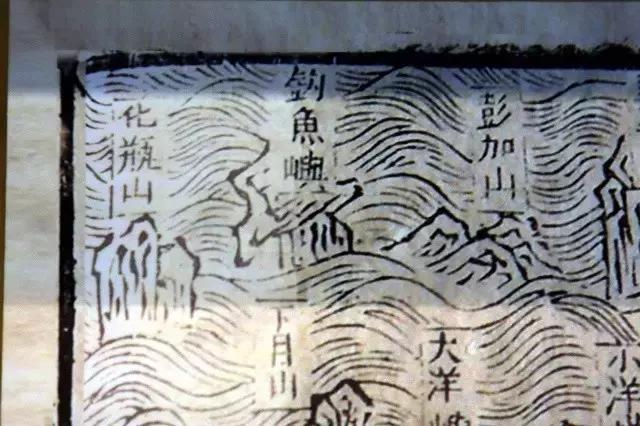 彭加山
釣魚嶼
花瓶山
小洋
大洋嶼
下月山